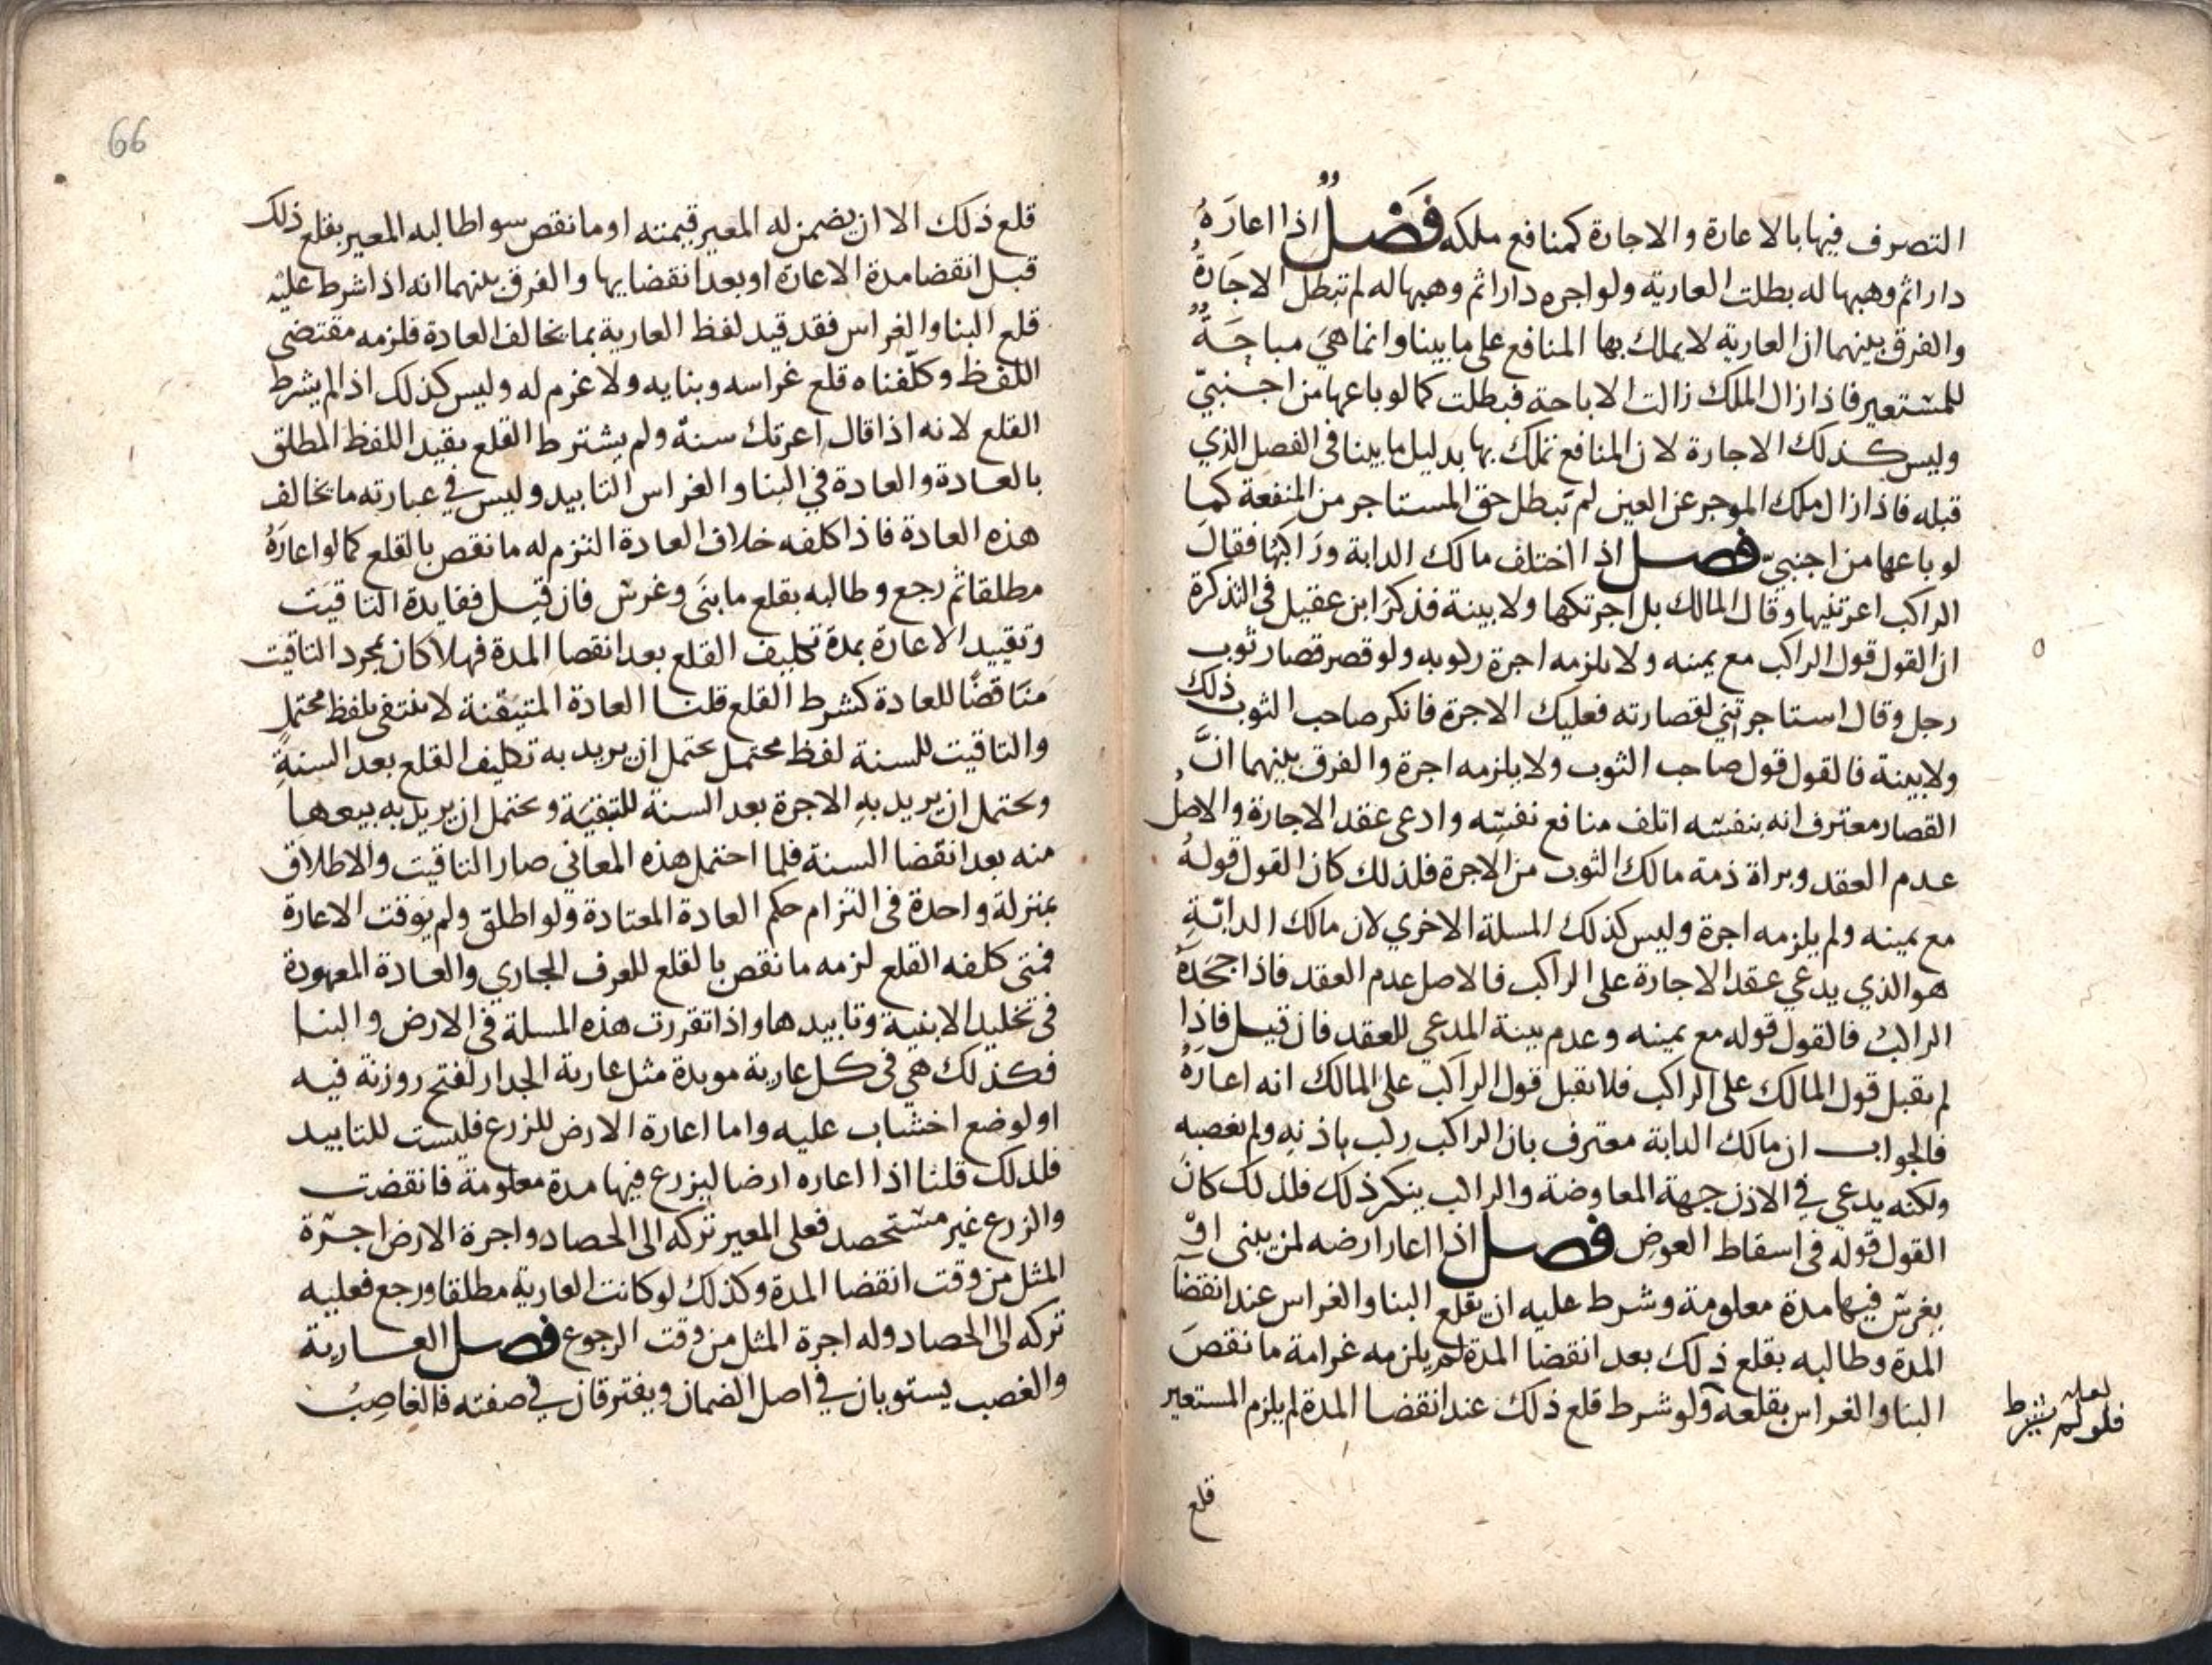 التصرف فيها بالاعارة والاجارة كمنافع ملكه فَصْلٌ اذا اعارَهُ
دارا ثم وهبها له بطلت العارية ولو اجره دارا ثم وهبها له لم تبطل الاجَارةُ
والفرق بينهما ان العارية لا يملك بها المنافع على ما بينا وانما هيَ مباحَةٌ
للمستعير فاذا زال الملك زالت الاباحة فبطلت كما لو باعها من اجنبيّ
وليس كذلك الاجارة لان المنافع تملك بها بدليل ما بينا في الفصل الذي
قبله فاذا زال ملك الموجر عن العين لم تبطل حق المستاجر من المنفعة كما
لو باعها من اجنبيّ فصل اذا اختلف مالك الدابة ورَاكبُها فقالَ
الراكب اعرتنيها وقال المالك بل اجرتكها ولا بينة فذكرَ ابن عقيل في التذكرة
ان القول قول الراكب مع يمينه ولا يلزمه اجرة ركوبه ولو قصر قصار ثوب
رجل وقال استاجرتني لقصارته فعليك الاجرة فانكر صاحب الثوب ذلك
ولا بينة فالقول قول صاحب الثوب ولا يلزمه اجرة والفرق بينهما انَّ
القصار معترف انه بنفسه اتلف منافع نفسه وادعى عقد الاجارة والاصلُ
عدم العقد وبراة ذمة مالك الثوب من الاجرة فلذلك كان القول قولهُ
مع يمينه ولم يلزمه اجرة وليس كذلك المسلة الاخري لان مالك الدابّةِ
هو الذي يدعي عقد الاجارة على الراكب فالاصل عدم العقد فاذا جَحَدَهُ
الراكبُ فالقول قوله مع يمينه وعدم بينة المدعي للعقد فان قيل فاذا
لم يقبل قول المالك على الراكب فلا يقبل قول الراكب على المالك انه اعارَهُ
فالجواب ان مالك الدابة معترف بان الراكب ركب باذنهِ ولم يغصبه
ولكنه يدعي في الاذن جهة المعاوضة والراكب ينكر ذلك فلذلك كانَ
القول قوله في اسقاط العوض فصل اذا اعار ارضه لمن يبني اوْ
يغرسُ فيها مدة معلومة وشرط عليه ان يقلع البنا والغراس عند انقضآ
المدة وطالبه بقلع ذلك بعد انقضا المدة لم يلزمه غرامة ما نقصَ
البنا والغراس بقلعه ولو شرط قلع ذلك عند انقضا المدة لم يلزم المستعير
لعله
فلو لم يشترط
قلع
66
قلع ذلك الا ان يضمن له المعير قيمته او ما نقص سوا طالبه المعير بقلع ذلك
قبل انقضا مدة الاعارة او بعد انقضايها والفرق بينهما انه اذا شرط عليْه
قلع البنا والغراس فقد قيد لفظ العارية بما يخالف العادة فلزمه مقتضي
اللفظ وكلّفناه قلع غراسه وبنايه ولا غرم له وليس كذلك اذا لم يشرط
القلع لانه اذا قال اعرتك سنةً ولم يشترط القلع يقيد اللفظ المطلق
بالعادة والعادة في البنا والغراس التابيد وليس في عبارته ما يخالف
هذه العادة فاذا كلفه خلاف العادة التزم له ما نقص بالقلع كما لو اعارَهُ
مطلقا ثم رجع وطالبه بقلع ما بنَى وغرسَ فان قيل ففايدة التاقيت
وتقييد الاعارة بمدة تكليف القلع بعد انقضا المدة فهلا كان بمجرد التاقيت
منَاقضًا للعادة كشرط القلع قلنا العادة المتيقنة لا تنتفي بلفظ محتملٍ
والتاقيت للسنة لفظ محتمل يحتمل ان يريد به تكليف القلع بعد السنةِ
ويحتمل ان يريد بهِ الاجرة بعد السنة للتبقيَة ويحتمل ان يريد به بيعها
منه بعد انقضا السنة فلما احتمل هذه المعاني صار التاقيت والاطلاق
بمنزلة واحدة في التزام حكم العادة المعتادة ولو اطلق ولم يوقت الاعارة
فمتى كلفه القلع لزمه ما نقص بالقلع للعرف الجاري والعادة المعهودة
في تخليد الابنية وتابيدها واذا تقررت هذه المسلة في الارض والبنا
فكذلك هي في كل عارية موبدة مثل عارية الجدار لفتح روزنة فيه
او لوضع اخشاب عليه واما اعارة الارض للزرع فليست للتابيد
فلذلك قلنا اذا اعاره ارضا ليزرع فيها مدة معلومة فانقضت
والزرع غير مستحصد فعلى المعير تركه الى الحصاد واجرة الارض اجرة
المثل من وقت انقضا المدة وكذلك لو كانت العارية مطلقا ورجع فعليه
تركه الى الحصاد وله اجرة المثل من وقت الرجوع فصل العارية
والغصب يستويان في اصل الضمان ويفترقان في صفته فالغاصِبُ